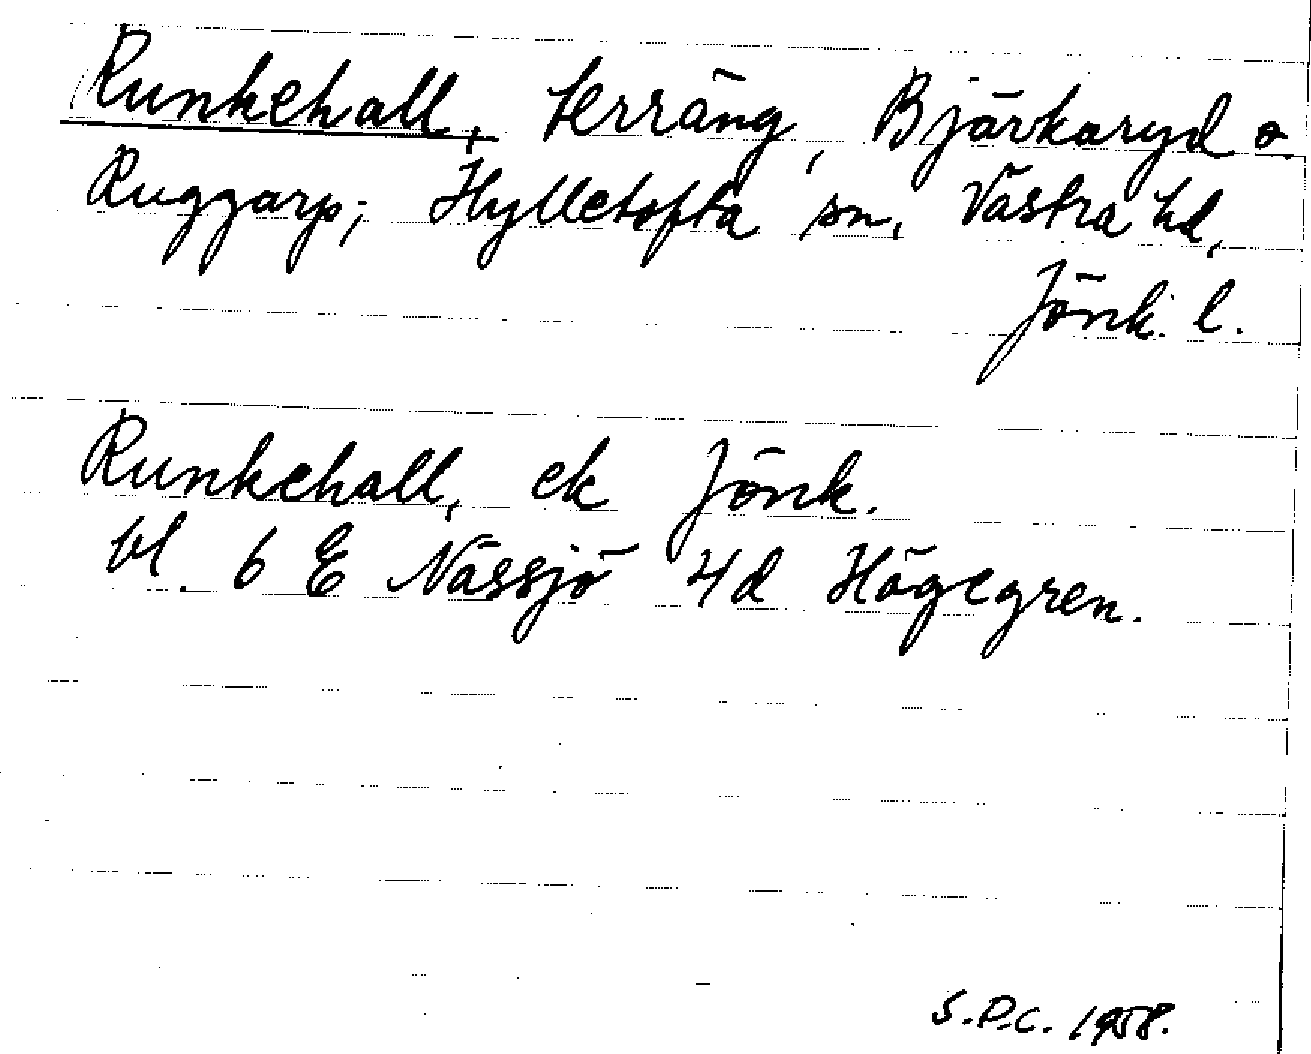 Runkehall, terräng, Bjärkaryd o
Ruggarp; Hylletofta sn, Västra hd,
Jönk. l.
Runkehall, ek Jönk.
bl. 6 E Nässjö 4d Högegren.
S.P.C. 1958.